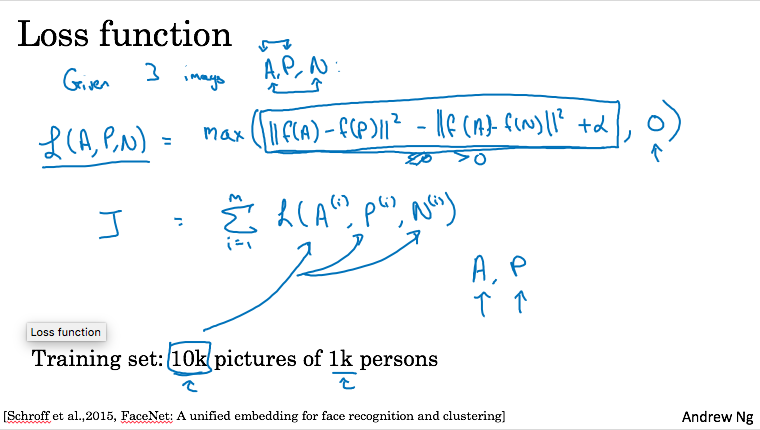 Loss function
Given 3 images A, P, N:
L(A,P,N) = max(||f(A)-f(P)||² - ||f(A)-f(N)||² +α, 0)
>0
J = Σ L(A⁽ⁱ⁾, P⁽ⁱ⁾, N⁽ⁱ⁾)
m
i=1
A, P
Loss function
Training set: 10k pictures of 1k persons
[Schroff et al.,2015, FaceNet: A unified embedding for face recognition and clustering]
Andrew Ng